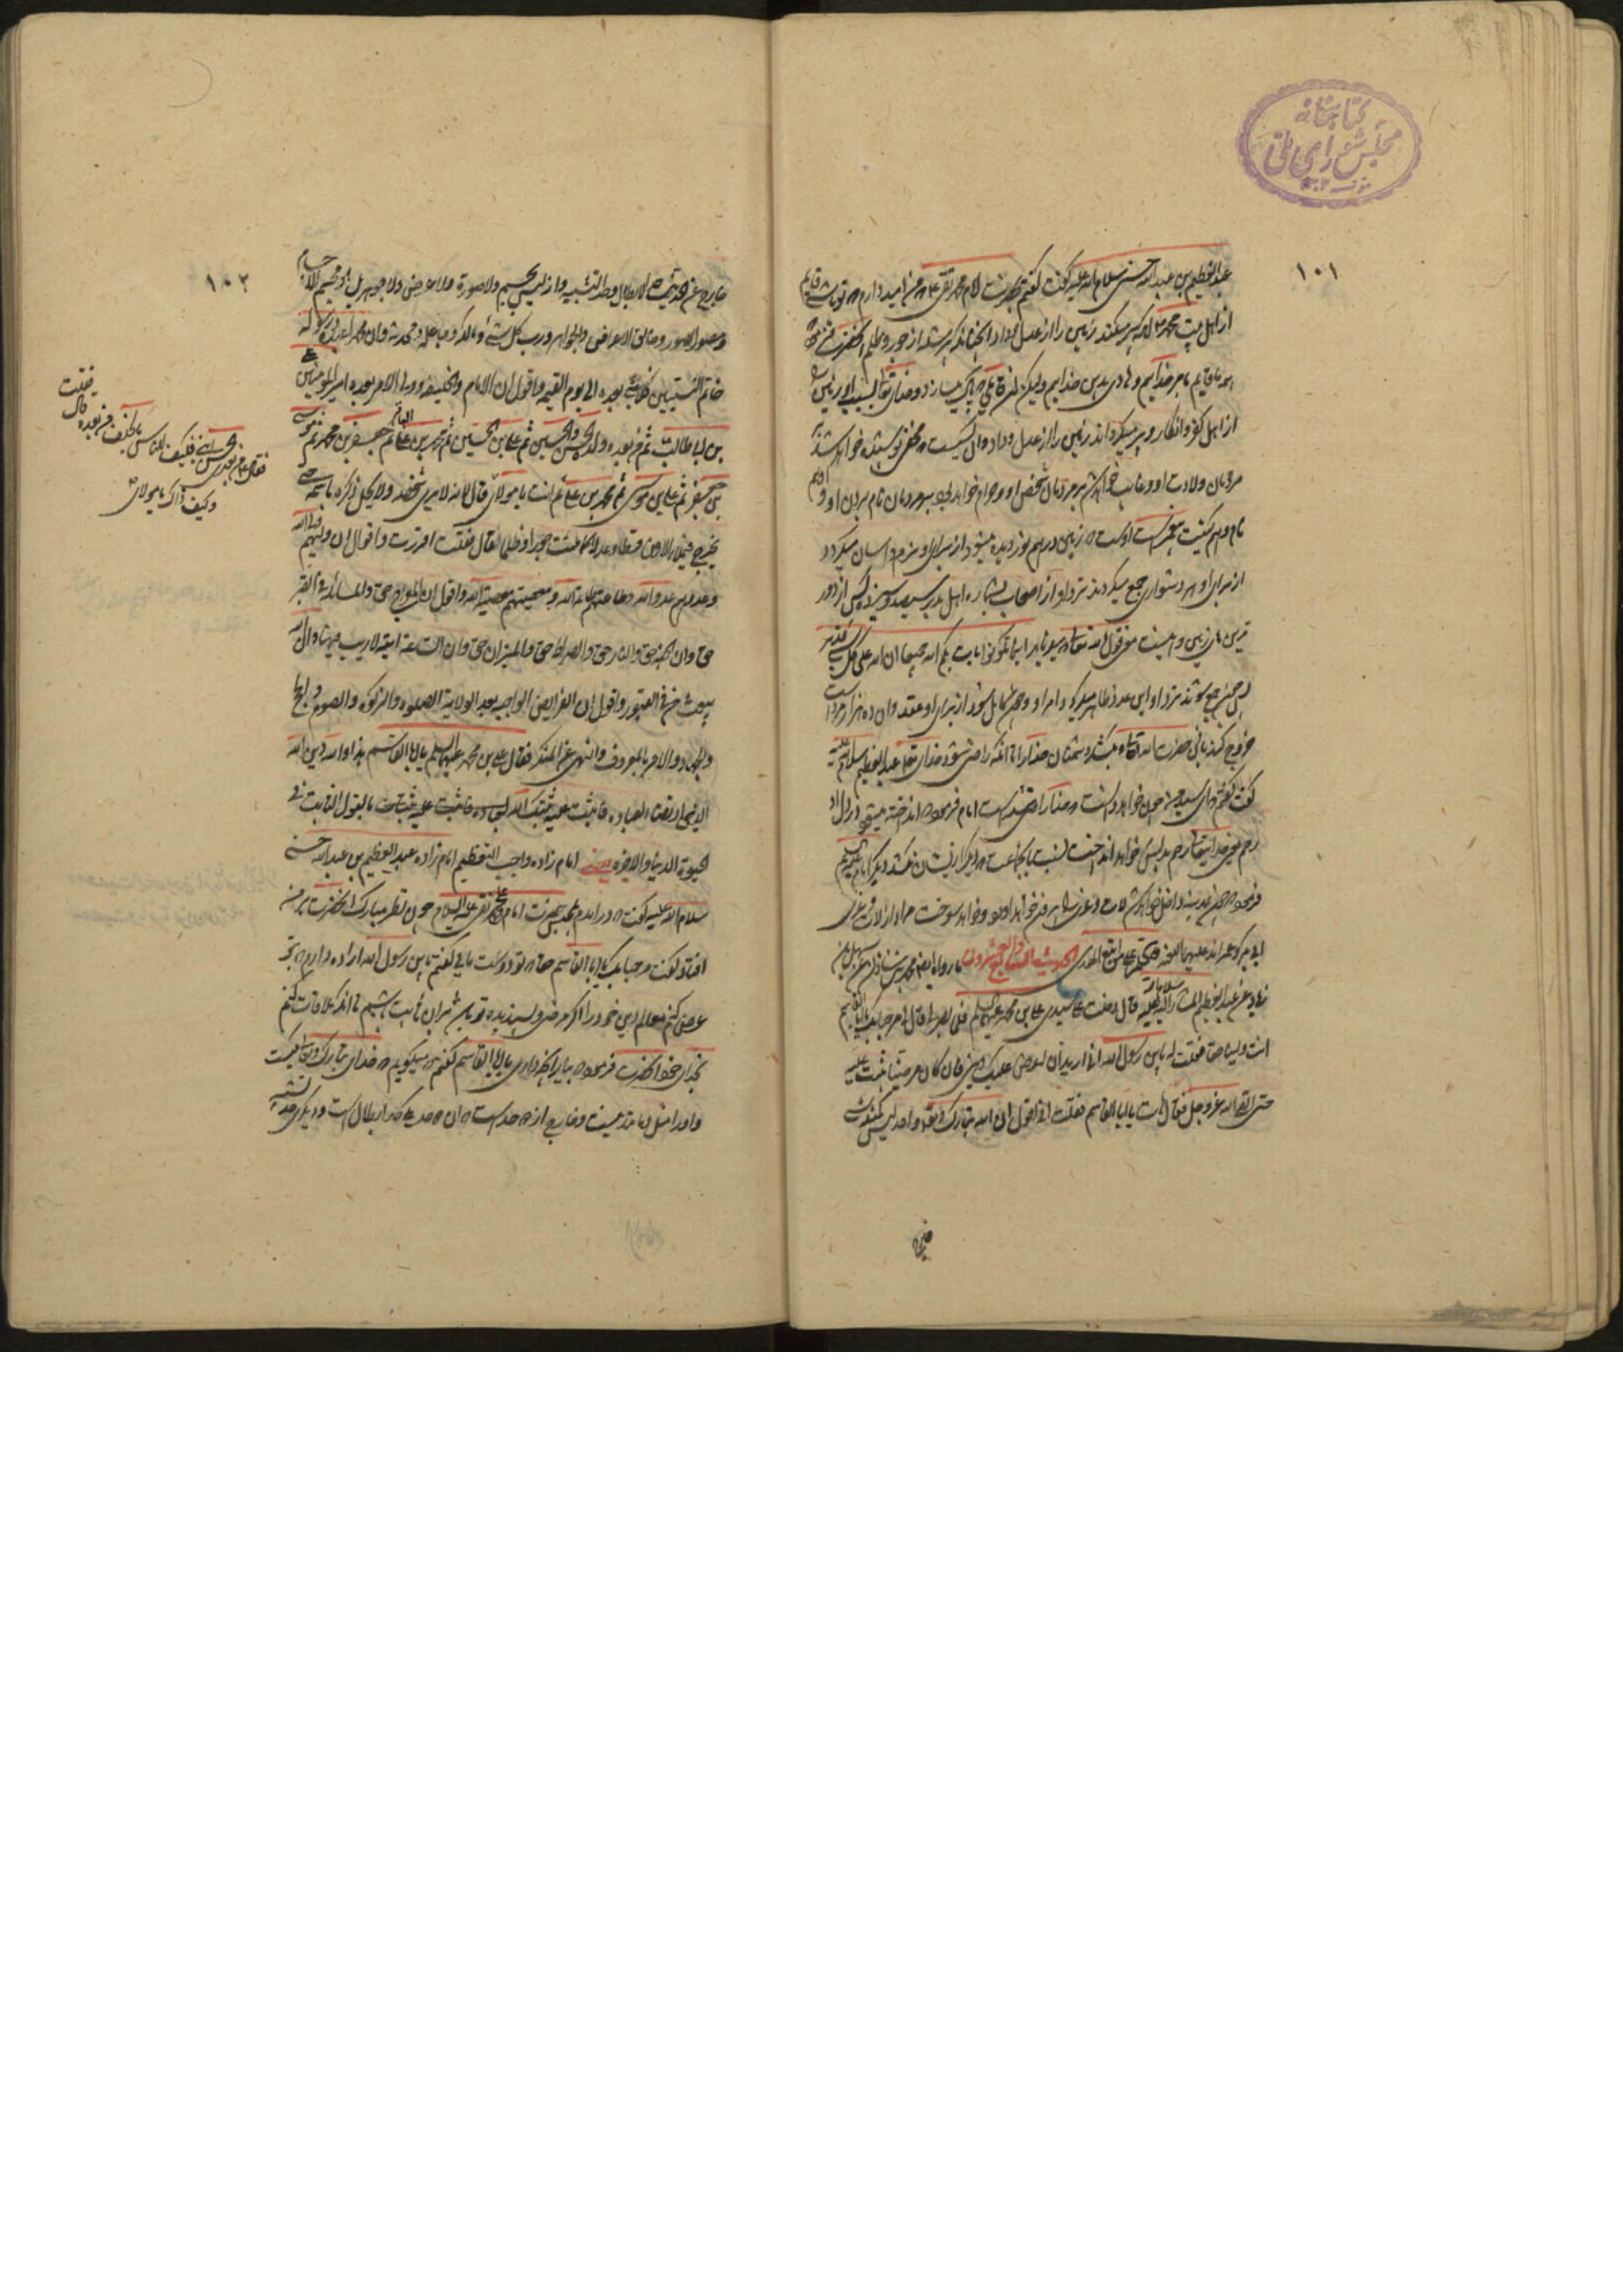 کتابخانه
مجلس شورای ملی
۱۰۱
عبدالعظیم بن عبدالله حسنی سلام الله علیه گفت گفتم بحضرت امام محمد تقی علیه من امید دارم که تو باشی قایم
از اهل بیت محمد که پر میکند زمین را از عدل و داد انچنانکه پر شده از جور و ظلم انحضرت
همه ما قایم بامر خدائیم و هادی بدین خدائیم ولیکن ان قایمی که پاک میسازد خدای تعالی بسبب او زمین را
از اهل کفر و انکار و پر میکرداند زمین را از عدل و داد وان کسیست که مخفی و پوشیده خواهد شد بر
مردمان ولادت او و غایب خواهد شد از مردمان شخص او و حرام خواهد بود بر مردمان نام بردن او و او هم
نام و هم کنیت پیغمبر است اوست که زمین در هم نوردیده میشود از برای او و نرم و اسان میکردد
از برای او هر دشواری جمع میکردند نزد او از اصحاب بشماره اهل بدر سیصد و سیزده کس از دور
ترین های زمین و اینست معنی قول الله تعالی اینما تکونوا یات بکم الله جمیعا ان الله علی کل شیء قدیر
پس چون جمع شوند نزد او این عدد ظاهر میکرداند امر او و چون کامل شود از برای او عقد وان ده هزار مرد است
خروج کند باذن حضرت الله تعالی و بکشد دشمنان خدا را تا انکه راضی شود خدای تعالی عبدالعظیم سلام الله علیه
گفت گفتم ای سید من چون خواهد دانست که خدا راضی شده است امام فرمود که انداخته میشود در دل او
رحم
فرمود که چون بمدینه داخل خواهد شد لات و عزی را بیرون خواهد اورد و خواهد سوخت مراد از لات و عزی
ابی بکر و عمر اند علیهما اللعنه الحدیث السابع والعشرون ما رواه ایضا محمد بن شاذان عن سهل بن
زیاد عن عبدالعظیم المشار الیه سلام الله علیه قال دخلت علی سیدی علی بن محمد علیهما السلم فلما بصر بی قال لی مرحبا بک یا ابا القاسم
انت ولینا حقا فقلت له یابن رسول الله انی ارید ان اعرض علیک دینی فان کان مرضیا ثبت علیه
حتی القی الله عز و جل فقال هات یا ابا القاسم فقلت انی اقول ان الله تبارک و تعالی واحد لیس کمثله شیء
۱۰۲
خارج عن الحدین حد الابطال وحد التشبیه وانه لیس بجسم ولا صورة ولا عرض ولا جوهر بل هو مجسم الاجسام
ومصور الصور وخالق الاعراض والجواهر ورب کل شیء ومالکه وجاعله ومحدثه وان محمدا عبده ورسوله
خاتم النبیین فلا نبی بعده الی یوم القیمه واقول ان الامام والخلیفه وولی الامر بعده امیرالمؤمنین علی
بن ابی طالب ثم من بعده ولده الحسن والحسین ثم علی بن الحسین ثم محمد بن علی الباقر ثم جعفر بن محمد ثم موسی
بن جعفر ثم علی بن موسی ثم محمد بن علی ثم انت یا مولای قال لانه لا یری شخصه ولا یحل ذکره باسمه حتی
یخرج فیملا الارض قسطا وعدلا کما ملئت جورا وظلما قال فقلت اقررت واقول ان ولیهم ولی الله
وعدوهم عدو الله وطاعتهم طاعة الله ومعصیتهم معصیة الله واقول ان المعراج حق والمسائله فی القبر
حق وان الجنة حق والنار حق والصراط حق والمیزان حق وان الساعة اتیة لاریب فیها وان الله
یبعث من فی القبور واقول ان الفرائض الواجبه بعد الولایة الصلوه والزکوه والصوم والحج
والجهاد والامر بالمعروف والنهی عن المنکر فقال علی بن محمد علیهما السلم یا ابا القاسم هذا والله دین الله
الذی ارتضاه لعباده فاثبت علیه ثبتک الله بالقول الثابت فی
الحیوة الدنیا والاخره یعنی امام زاده واجب التعظیم امام زاده عبدالعظیم بن عبدالله حسنی
سلام الله علیه گفت که در امدم بمجلس حضرت امام علی نقی علیه السلام چون نظر مبارک انحضرت بر من
افتاد گفت مرحبا بک یا ابا القاسم حقا که تو دوست مایی گفتم یابن رسول الله اراده دارم که بر تو
عرض کنم معالم دین خود را اگر مرضی و پسندیده تو باشد بر ان ثابت باشم تا انکه ملاقات کنم
بخدای خود انحضرت فرمود که بیار انچه داری یا ابا القاسم گفتم که میگویم که خدای تبارک و تعالی یکیست
و او را مثل و مانند نیست و خارج از دو حد است ان دو حد یکی حد ابطال است و دیگری حد تشبیه
فقلت
فقال علی ومن بعدی الحسن ابنی فکیف للناس بالخلف من بعده قال
وکیف ذاک یا مولای